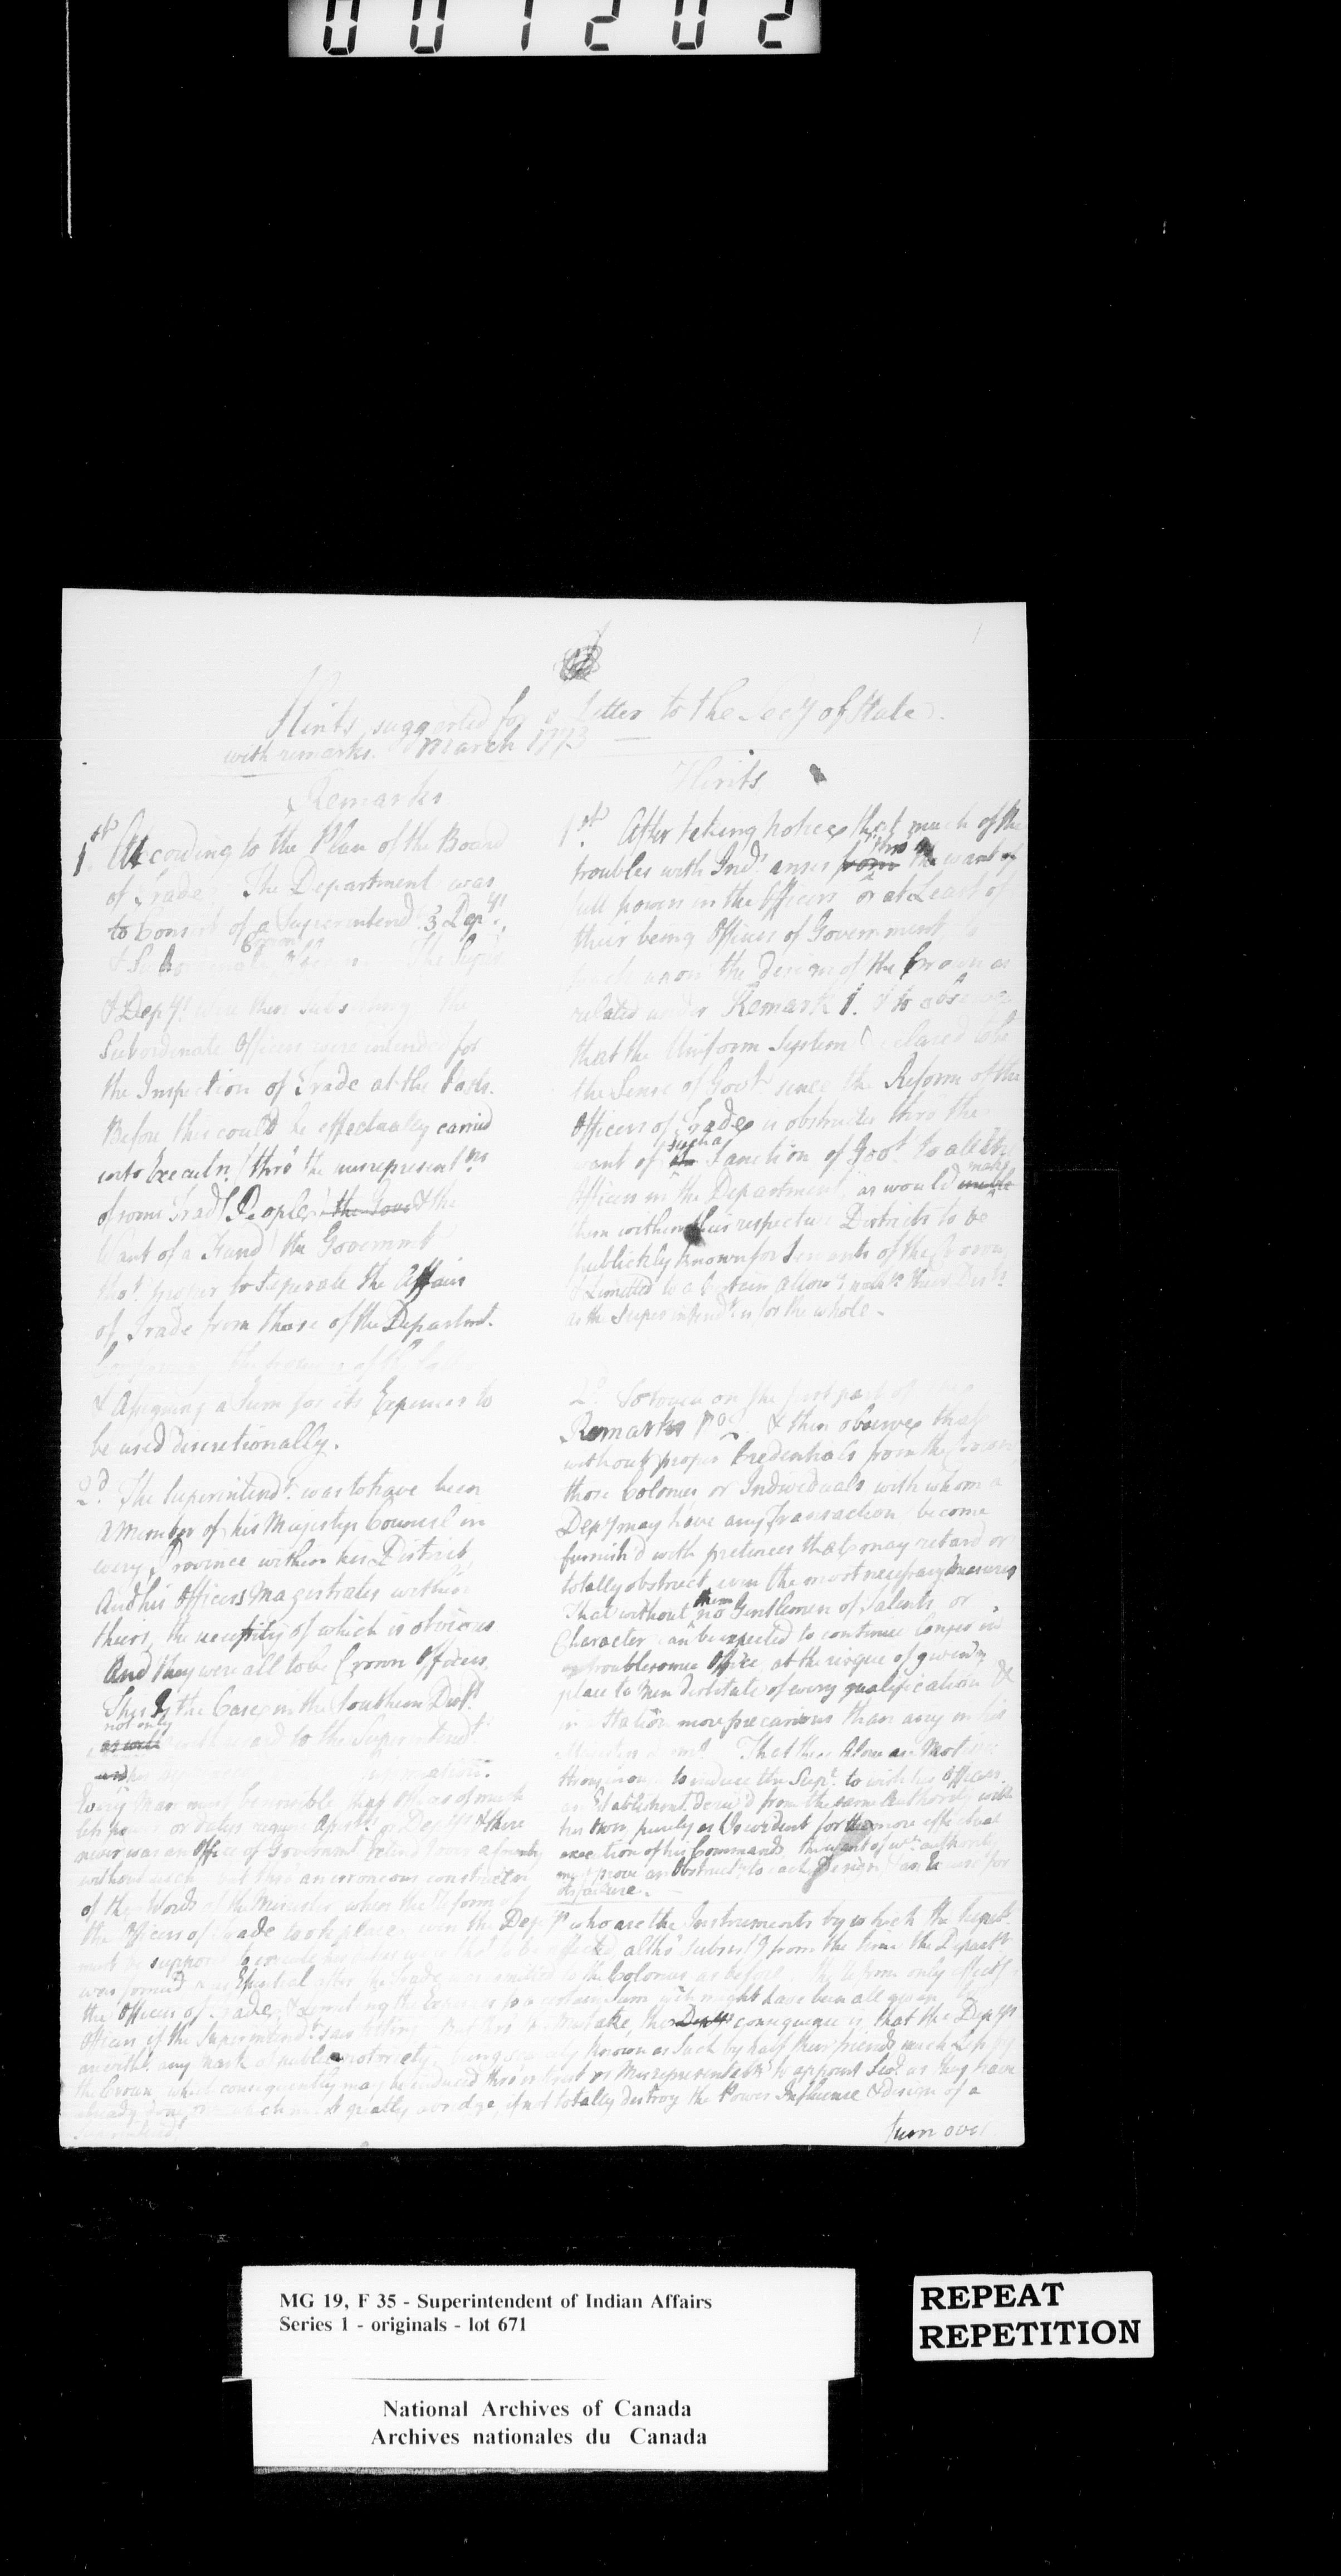 001202
Hints suggested for a Letter to the Secy of State
with remarks. March 1773
Remarks
1st According to the Plan of the Board
of Trade The Department was
to Consist of a Superintendt 3 Depys
& Subordinate Crown The Supt
& Depys were then subsisting the
Subordinate Officers were intended for
the Inspection of Trade at the Posts.
Before this could be effectually carried
into Executn (thro' the misrepresentns
of some Tradg People the Gov & the
Want of a Fund) the Governmt
thot proper to separate the Affairs
of Trade from those of the Departmt.
the
& Assigning a Sum for its Expences to
be used discretionally.
2d. The Superintendt. was to have been
a member of his Majestys Council in
every Province within his District
And his Officers Magistrates within
theirs, the necessity of which is obvious
And they were all to be Crown Officers.
This is the Case in the Southern Dist
not only
as well with regard to the Superintendt
and
Every Man must be sensible that Offices of much
less power or duties require Assists or Depys & there
never was an Office of Government
without such but thro an erroneous construction
of the Words of the Minister when the Reform of
Hints
1st. After taking notice that much of the
troubles with Inds arises from thro the want of
full powers in the Officers or at Least of
their being Officers of Government to
touch upon the design of the Crown as
related under Remark 1. & to observe
that the Uniform System declared to be
the Sense of Govt since the Reform of the
Officers of Trade is obstructed thro' the
want of its such a Sanction of Govt. to all the
Officers in the Department, as would make
them within their respective Districts to be
publickly known for Servants of the Crown,
& Limitted to a Certain allowce within their Dists.
as the Superintendt. is for the whole.
2d. To touch on the first part of
Remarks No 2. & then observe that
without proper Credentials from the Crown
those Colonies or Individuals with whom a
Depy may have any Transaction become
furnish'd with pretences that may retard or
totally obstruct even the most necessary Measures
That without them no Gentlemen of Talents or
Character can be expected to continue longer in
troublesome Office, at the risque of giving
place to Men destitute of every qualification &
in a Station more precarious than any in his
Majestys That these alone are Motives
strong enough to induce the Supt. to wish his Officers
an Establishmt. deriv'd from the same Authority with
his own purely as Expedient for the more effectual
execution of his Commands, the want of wh. authority
may prove an Obstructn to each Design & an Excuse for
its failure.
the Officers of Trade took place, even the Depys who are the Instruments by which the Supt.
must be supposed to execute his were thot to be affected, altho' subsistg from the time the Departt
was formed & as Essential after the Trade was committed to the Colonies as before, the Reform only affectg
the Officers of Trade, & limiting the Expences to a certain Sum wch might have been all given
Officers if the Superintendt. saw fitting But thro' this Mistake, the Depys consequence is that the Depys
are witht. any mark of public notoriety being scarcely known as such by half their friends much Less by
the Crown, which consequently may be induced thro' interest or Misrepresentatn to appoint Sevl. as they have
already done one which must greatly abridge, if not totally destroy the Power Influence & design of a
Superintendt
turn over
MG 19, F 35 - Superintendent of Indian Affairs
Series 1 - originals - lot 671
REPEAT
REPETITION
National Archives of Canada
Archives nationales du Canada